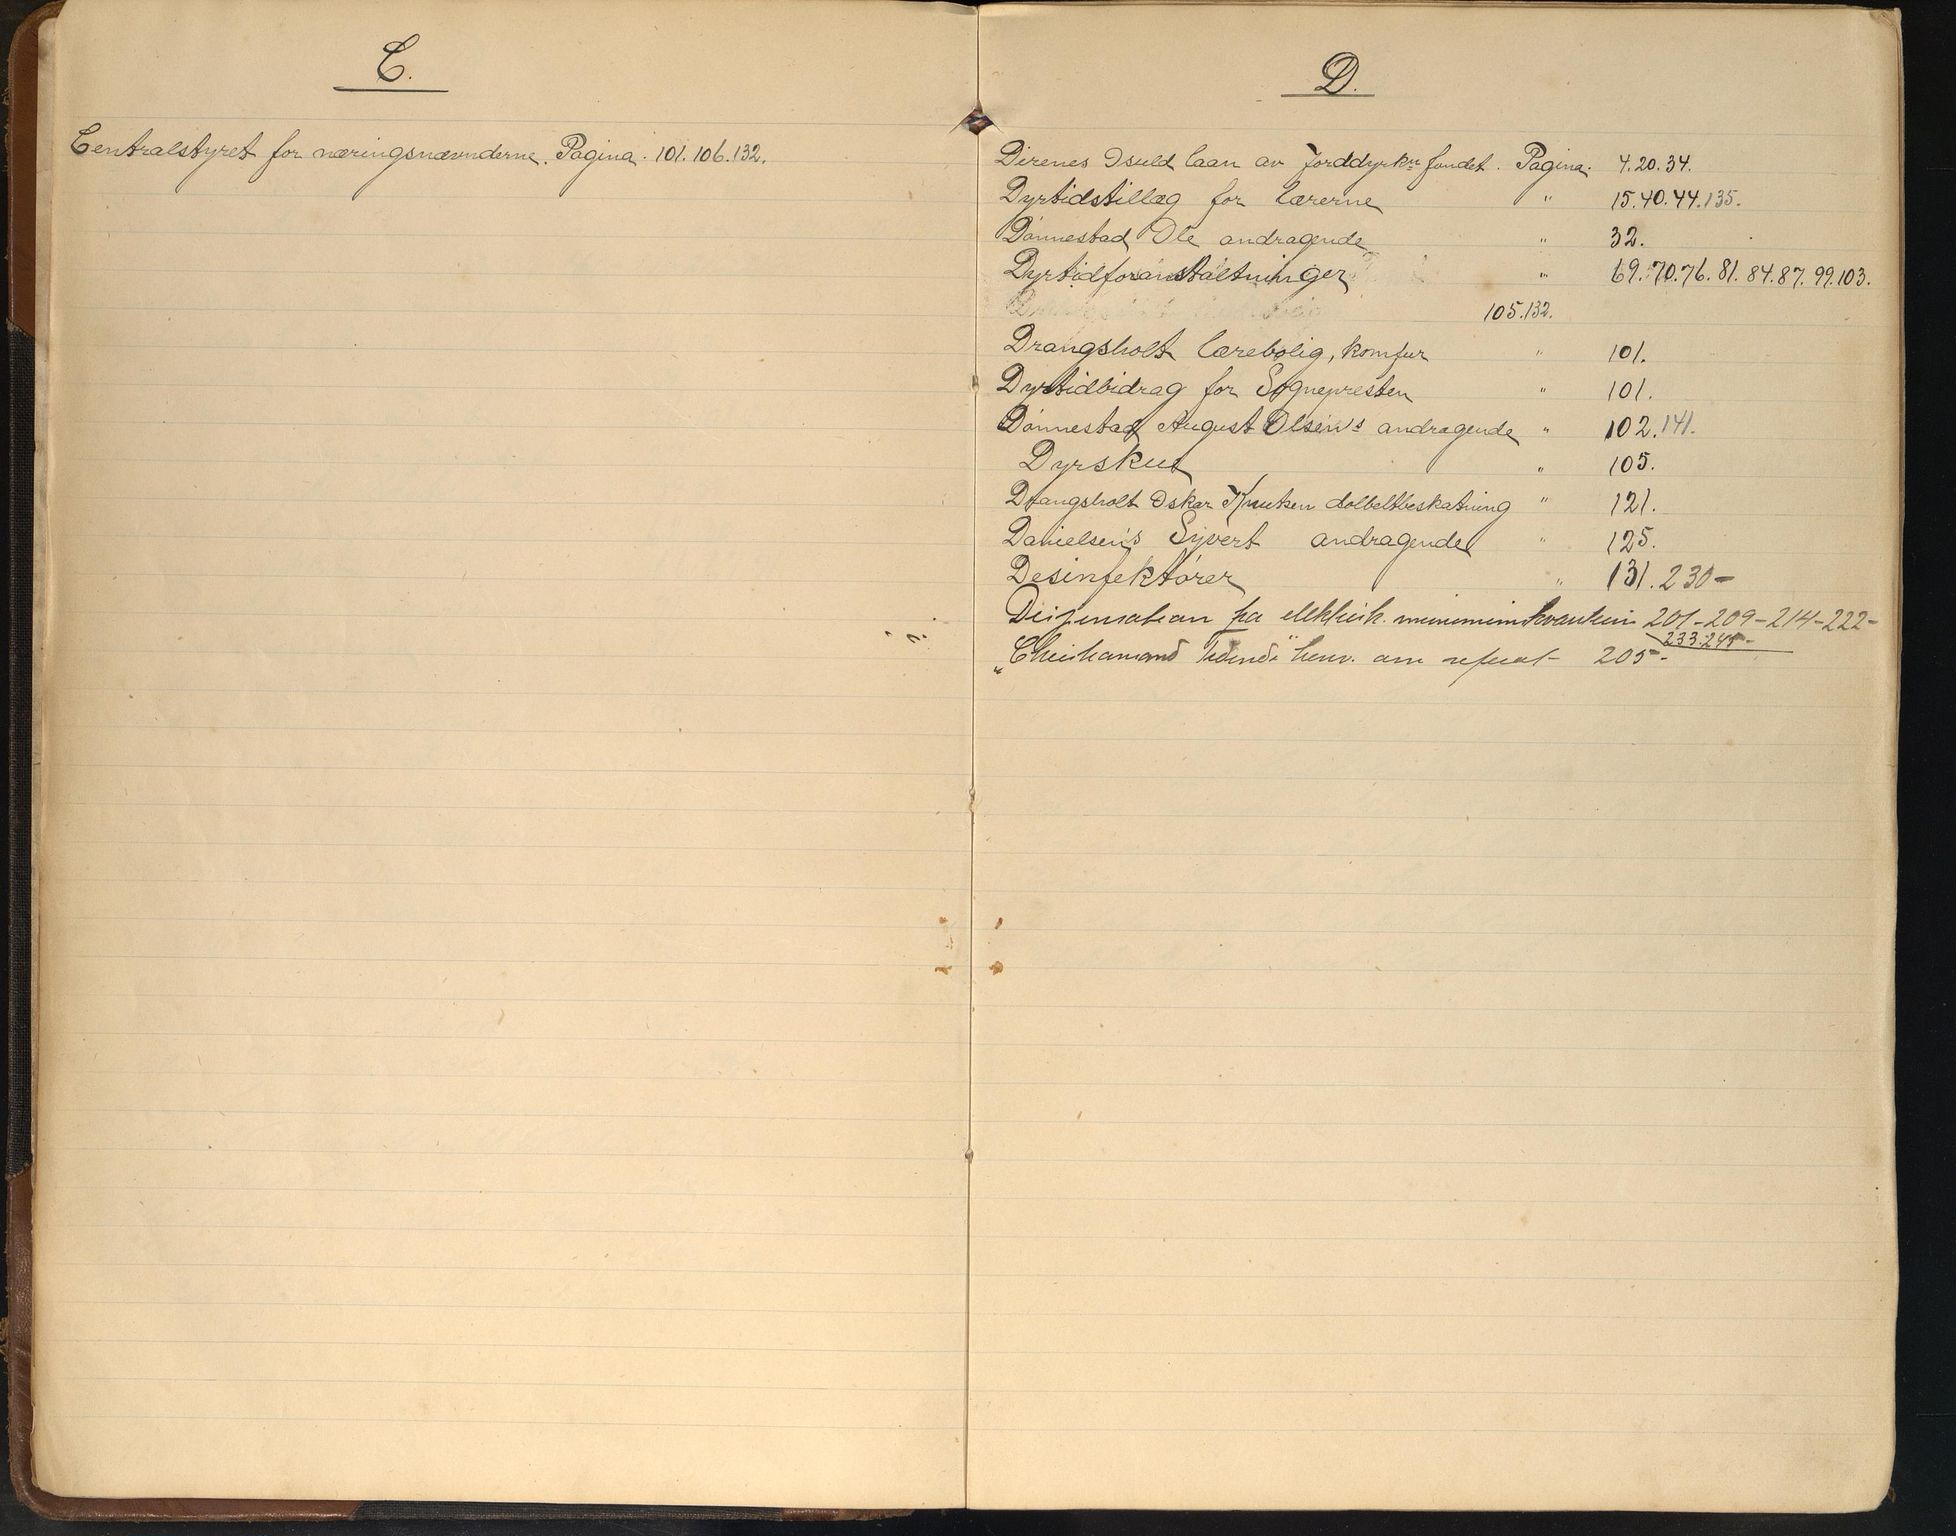 C.
Centralstyret for næringsnævnderne. Pagina. 101. 106. 132.
D.
Direnes Osuld laan av Jorddyrkn fondet. Pagina. 4. 20. 34.
Dyrtidstillæg for lærerne " 15. 40. 44. 135.
Dønnestad Ole andragende " 32.
Dyrtidforanstaltninger " 69. 70. 76. 81. 84. 87. 99. 103.
105. 132.
Drangsholt lærebolig, komfur " 101.
Dyrtidbidrag for Sognepresten " 101.
Dønnestad August Olsen's andragende " 102. 141.
Dyrskue " 105.
Drangsholt Oskar Knutsen dobbeltbeskatning " 121.
Danielsen's Syvert andragende " 125.
Desinfektører " 131. 230-
Dispensation fra elektrisk. minimumskvantum 201-209-214-222-
233.245-
"Christiansand Tidende" henv. om referat- 205-